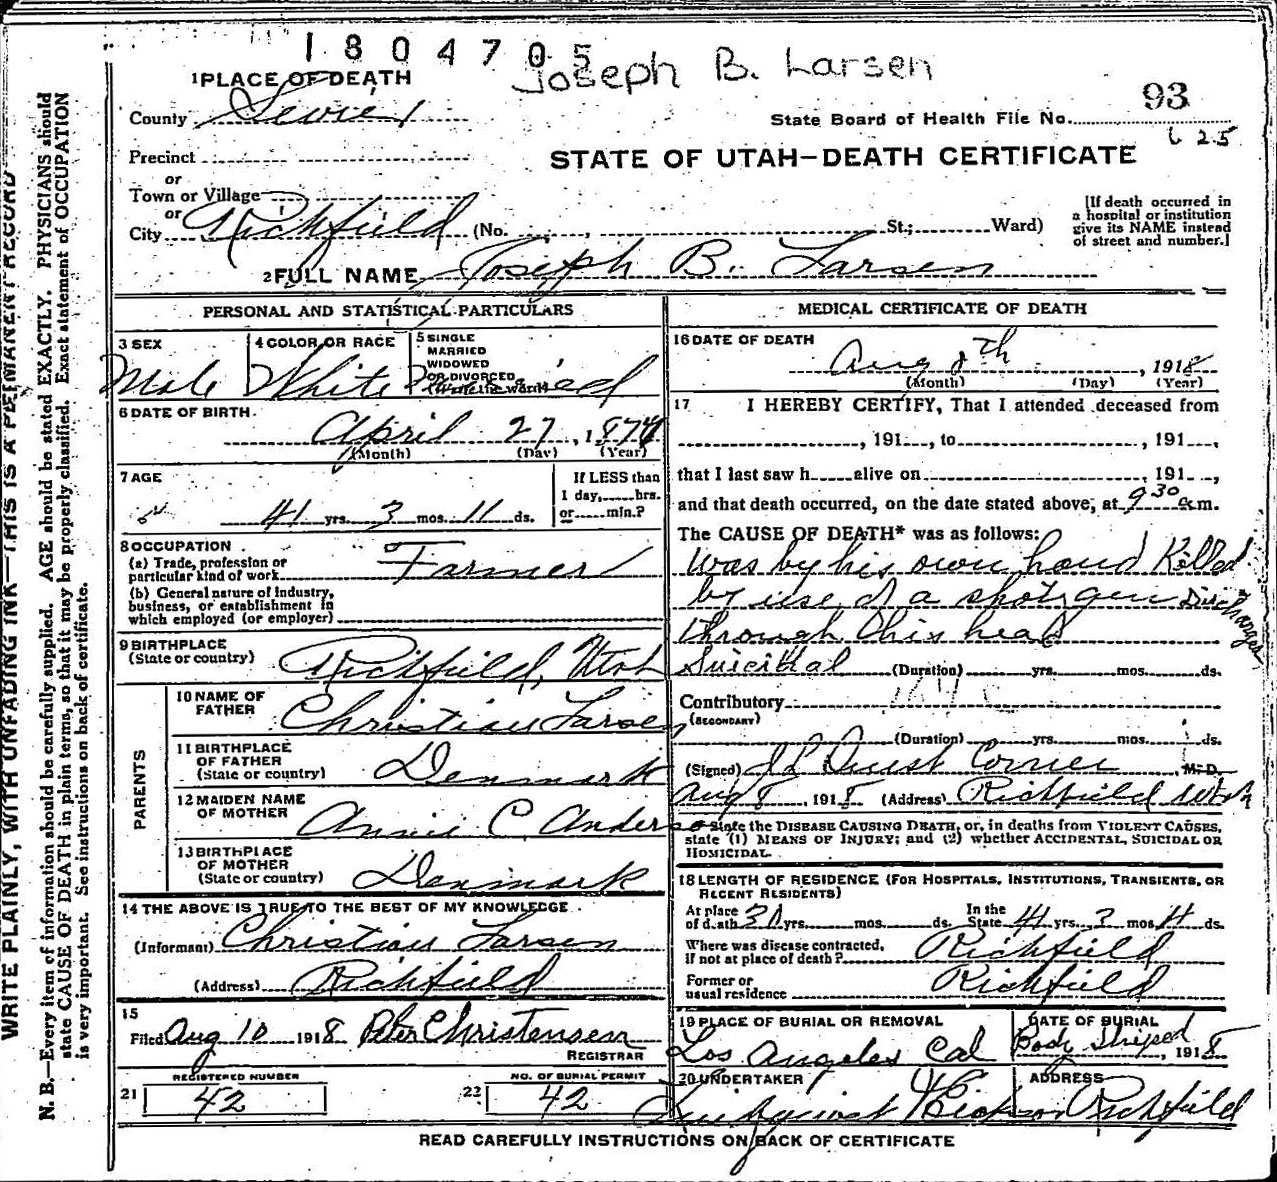 1804705
Joseph B. Larsen
93
1 PLACE OF DEATH
County Sevier
State Board of Health File No.
625
Precinct
STATE OF UTAH—DEATH CERTIFICATE
or
Town or Village
or
City Richfield (No. , St.; Ward)
[If death occurred in
a hospital or institution
give its NAME instead
of street and number.]
2 FULL NAME Joseph B. Larsen
PERSONAL AND STATISTICAL PARTICULARS
3 SEX
Male
4 COLOR OR RACE
White
5 SINGLE
MARRIED
WIDOWED
OR DIVORCED
(Write the word)
Married
6 DATE OF BIRTH
April 27, 187
(Month) (Day) (Year)
7 AGE
41 yrs. 3 mos. 11 ds.
If LESS than
1 day, hrs.
or min.?
8 OCCUPATION
(a) Trade, profession or
particular kind of work Farmer
(b) General nature of Industry,
business, or establishment in
which employed (or employer)
9 BIRTHPLACE
(State or country) Richfield, Utah
PARENTS
10 NAME OF
FATHER Christian Larsen
11 BIRTHPLACE
OF FATHER
(State or country) Denmark
12 MAIDEN NAME
OF MOTHER Annie C. Anderson
13 BIRTHPLACE
OF MOTHER
(State or country) Denmark
14 THE ABOVE IS TRUE TO THE BEST OF MY KNOWLEDGE
(Informant) Christian Larsen
(Address) Richfield
15
Filed Aug 10 1918 Peter Christensen
REGISTRAR
21 REGISTERED NUMBER
42
22 NO. OF BURIAL PERMIT
42
MEDICAL CERTIFICATE OF DEATH
16 DATE OF DEATH
Aug 8th, 1918
(Month) (Day) (Year)
17 I HEREBY CERTIFY, That I attended deceased from
, 191 , to , 191 ,
that I last saw h alive on , 191 ,
and that death occurred, on the date stated above, at 9 30 a.m.
The CAUSE OF DEATH* was as follows:
Was by his own hand Killed
by use of a shotgun Discharged
through this head
Suicithal (Duration) yrs. mos. ds.
Contributory
(SECONDARY)
(Duration) yrs. mos. ds.
(Signed) Corner, M. D.
Aug 8, 1918 (Address) Richfield Utah
*State the DISEASE CAUSING DEATH, or, in deaths from VIOLENT CAUSES,
state (1) MEANS OF INJURY; and (2) whether ACCIDENTAL, SUICIDAL OR
HOMICIDAL.
18 LENGTH OF RESIDENCE (FOR HOSPITALS, INSTITUTIONS, TRANSIENTS, OR
RECENT RESIDENTS)
At place
of death 30 yrs. mos. ds. In the
State 41 yrs. 3 mos. 11 ds.
Where was disease contracted,
if not at place of death? Richfield
Former or
usual residence Richfield
19 PLACE OF BURIAL OR REMOVAL
Los Angeles Cal
DATE OF BURIAL
Body Shiped, 1918
20 UNDERTAKER
ADDRESS
Richfield
READ CAREFULLY INSTRUCTIONS ON BACK OF CERTIFICATE
WRITE PLAINLY, WITH UNFADING INK—THIS IS A PERMANENT RECORD
N. B.—Every item of information should be carefully supplied. AGE should be stated EXACTLY. PHYSICIANS should
state CAUSE OF DEATH in plain terms, so that it may be properly classified. Exact statement of OCCUPATION
is very important. See instructions on back of certificate.